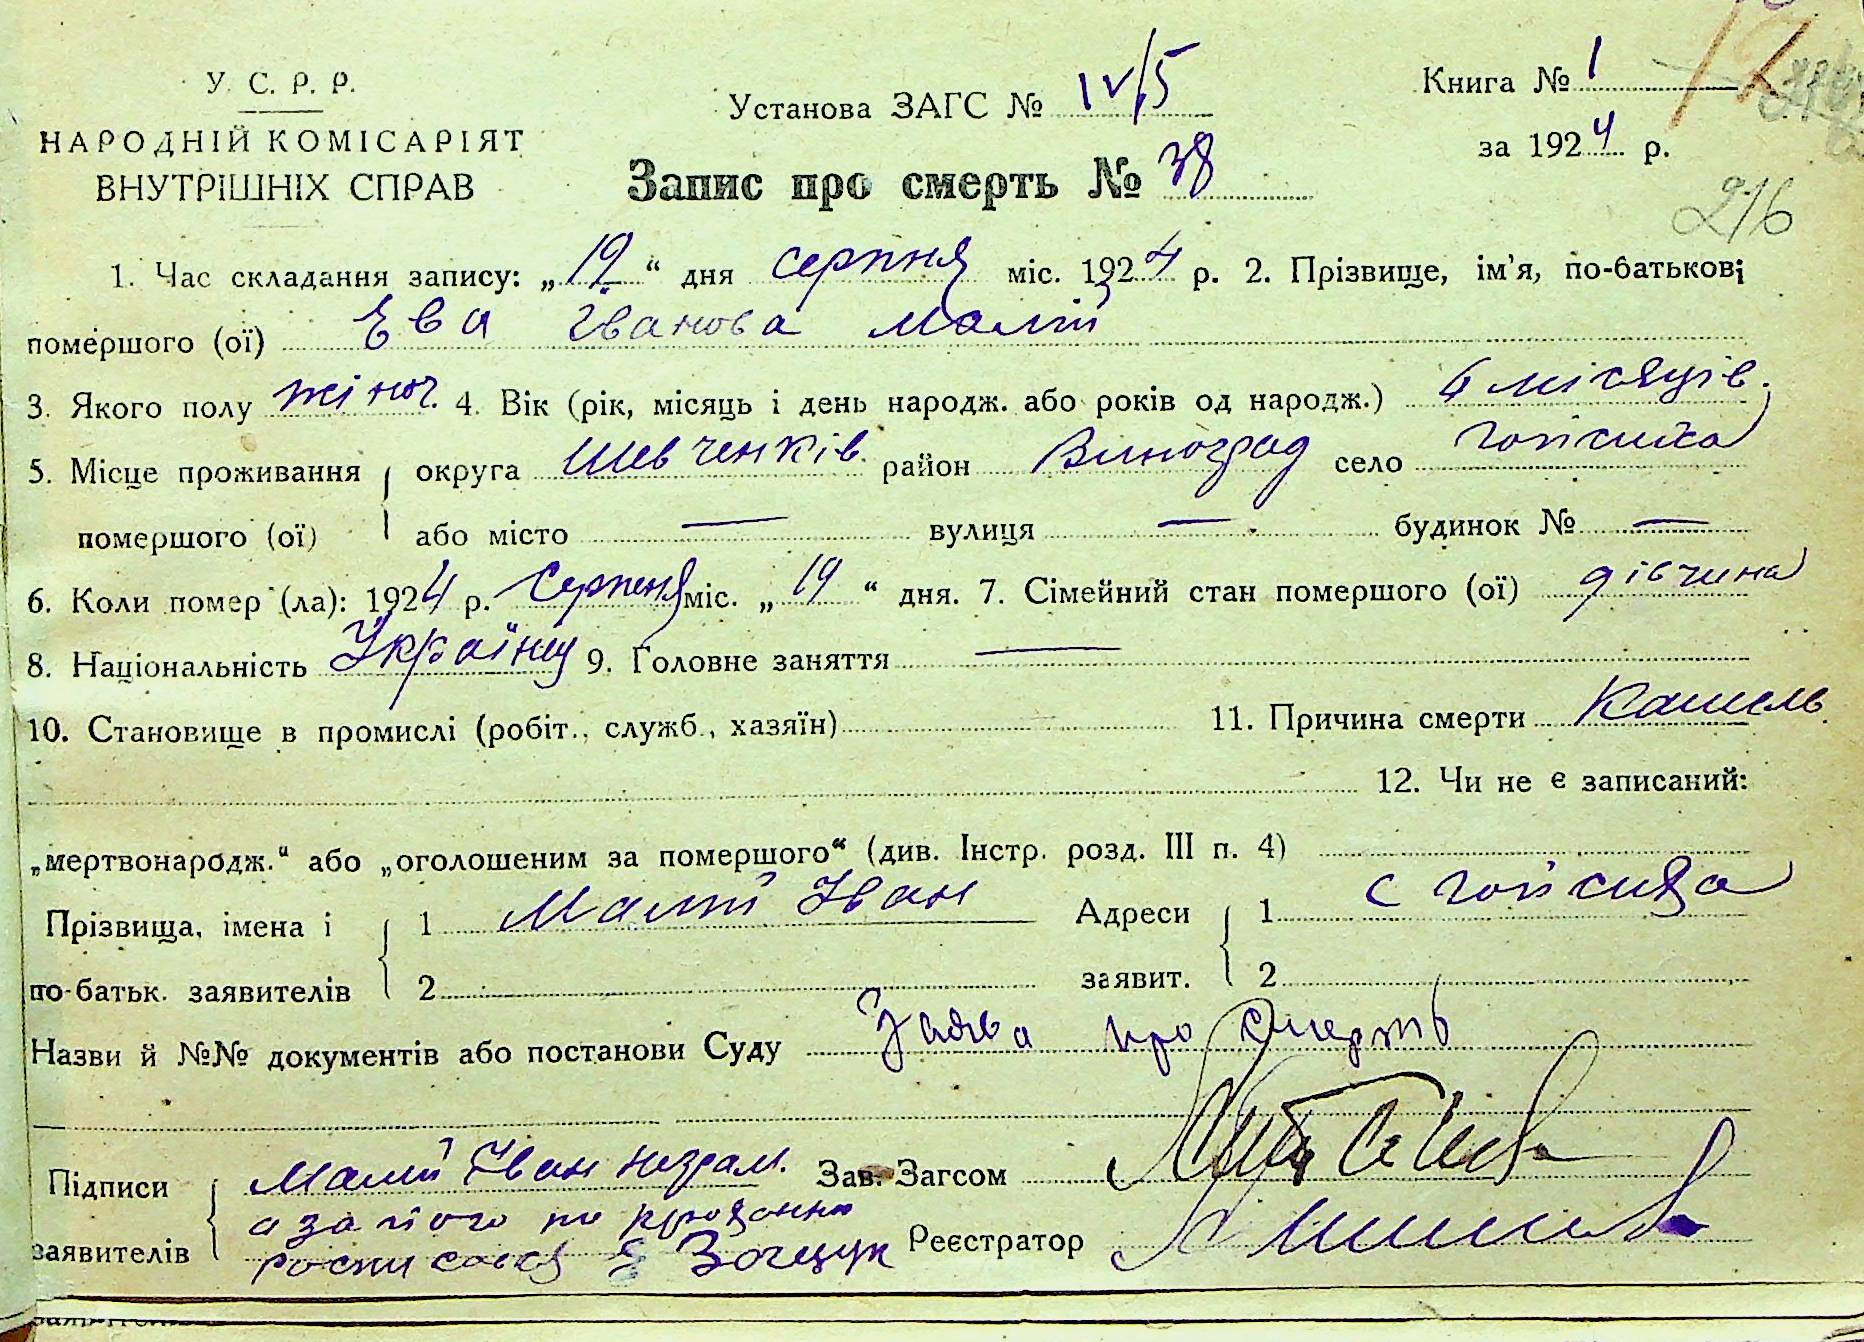 У. С. Р. Р.
НАРОДНІЙ КОМІСАРІЯТ
ВНУТРІШНІХ СПРАВ
Установа ЗАГС № IV/5
Книга № 1
за 1924 р.
Запис про смерть № 38
216
1. Час складання запису: „19“ дня серпня міс. 1924 р. 2. Прізвище, ім'я, по-батькові
помершого (ої) Ева Іванова Малій
3. Якого полу жіноч. 4. Вік (рік, місяць і день народж. або років од народж.) 6 місяців.
5. Місце проживання округа Шевченків. район Виноград село
помершого (ої) або місто — вулиця — будинок № —
6. Коли помер (ла): 1924 р. Серпня міс. „19“ дня. 7. Сімейний стан помершого (ої) дівчина
8. Національність Україну 9. Головне заняття —
10. Становище в промислі (робіт., служб., хазяїн) 11. Причина смерти Кашель
12. Чи не є записаний:
„мертвонародж.“ або „оголошеним за помершого“ (див. Інстр. розд. III п. 4)
Прізвища, імена і 1 Малий Іван Адреси 1 с
по-батьк. заявителів 2 заявит. 2
Назви й №№ документів або постанови Суду Заява про смерть
Підписи Малий Іван незрам. Зав. Загсом
а за його по
заявителів Реєстратор